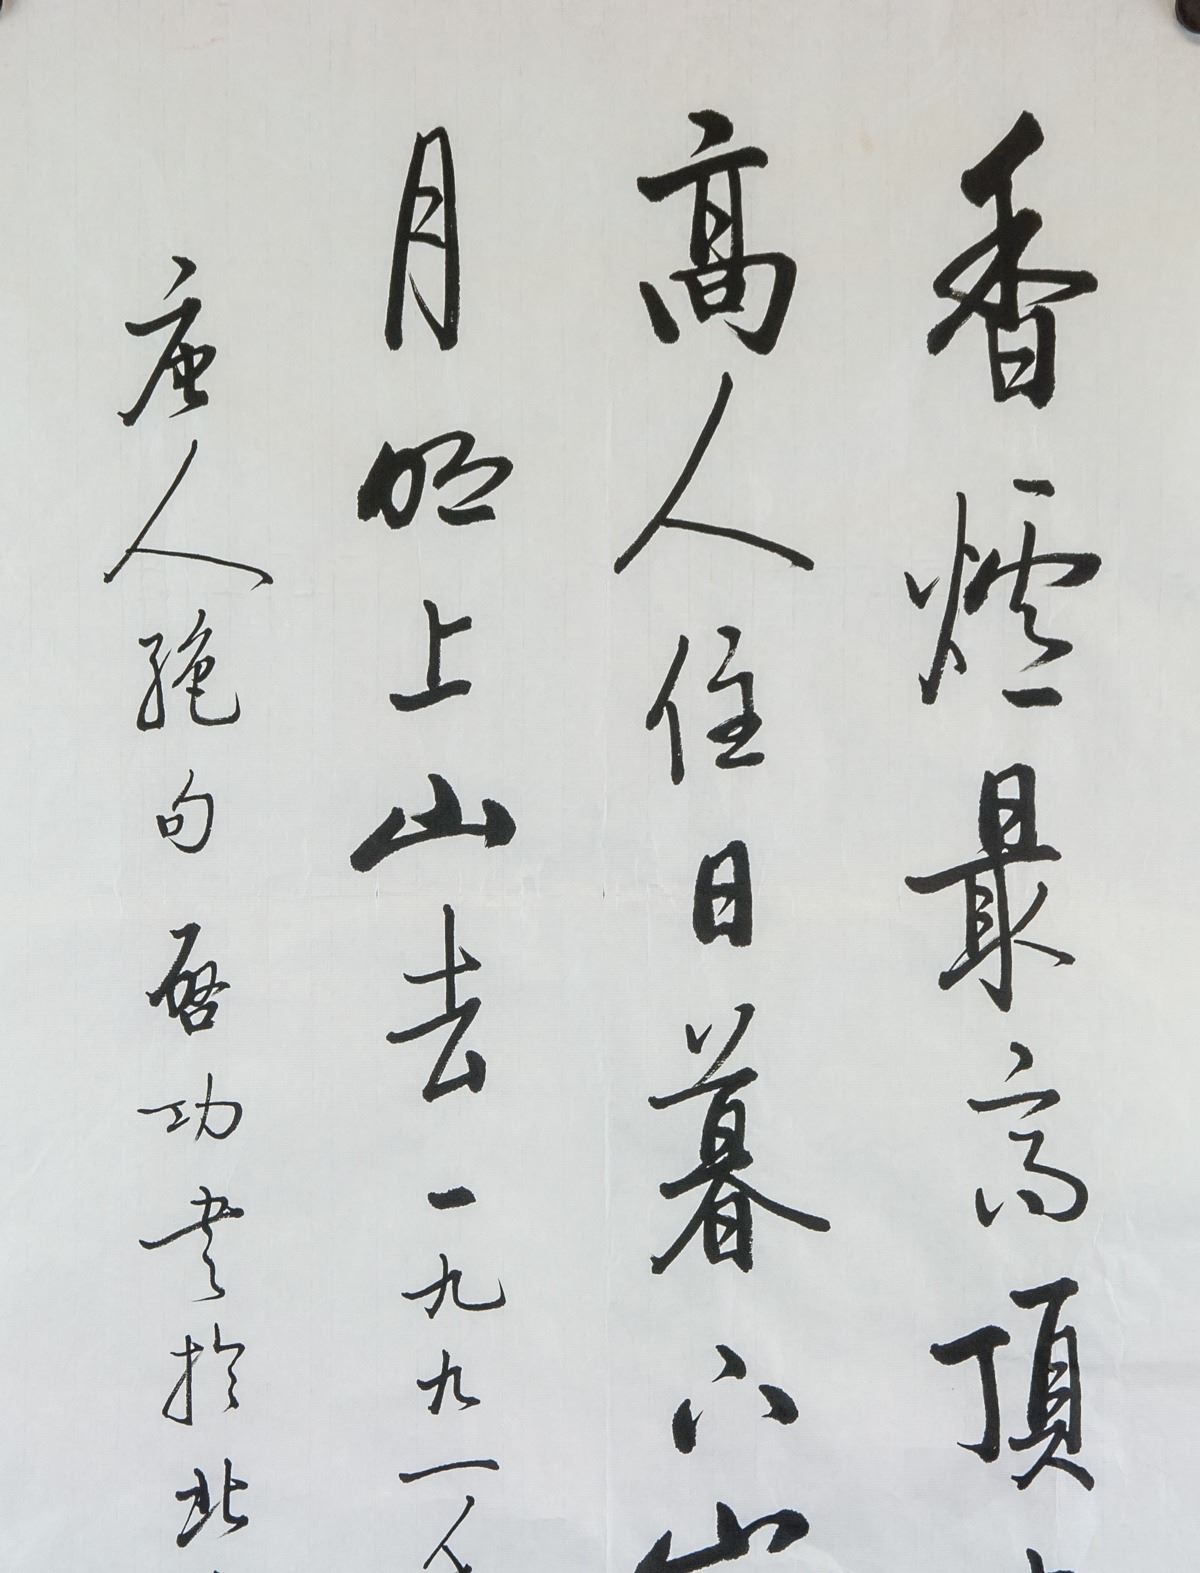 香爐最高頂
高人住日暮下山
月明上山去一九九一
唐人絕句啓功書於北